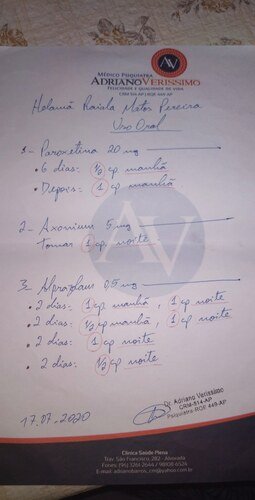 AV
MÉDICO PSIQUIATRA
ADRIANO VERISSIMO
FELICIDADE E QUALIDADE DE VIDA
CRM 514-AP | RQE 449-AP
Raiala Matos Pereira
Uso Oral
1- Paroxetina 20 mg
• 6 dias: 1/2 cp manhã
• Depois: 1 cp manhã
2- Axonium 5 mg
Tomar 1 cp noite
AV
3- Alprazolam 0,5 mg
• 2 dias: 1 cp manhã, 1 cp noite
• 2 dias: 1/2 cp manhã, 1 cp noite
• 2 dias: 1 cp noite
• 2 dias: 1/2 cp noite
17.07.2020
Dr. Adriano Verissimo
CRM-514-AP
Psiquiatra-RQE 449-AP
Clínica Saúde Plena
Trav. São Francisco, 282 - Alvorada
Fones: (96) 3261 2644 / 98108 6524